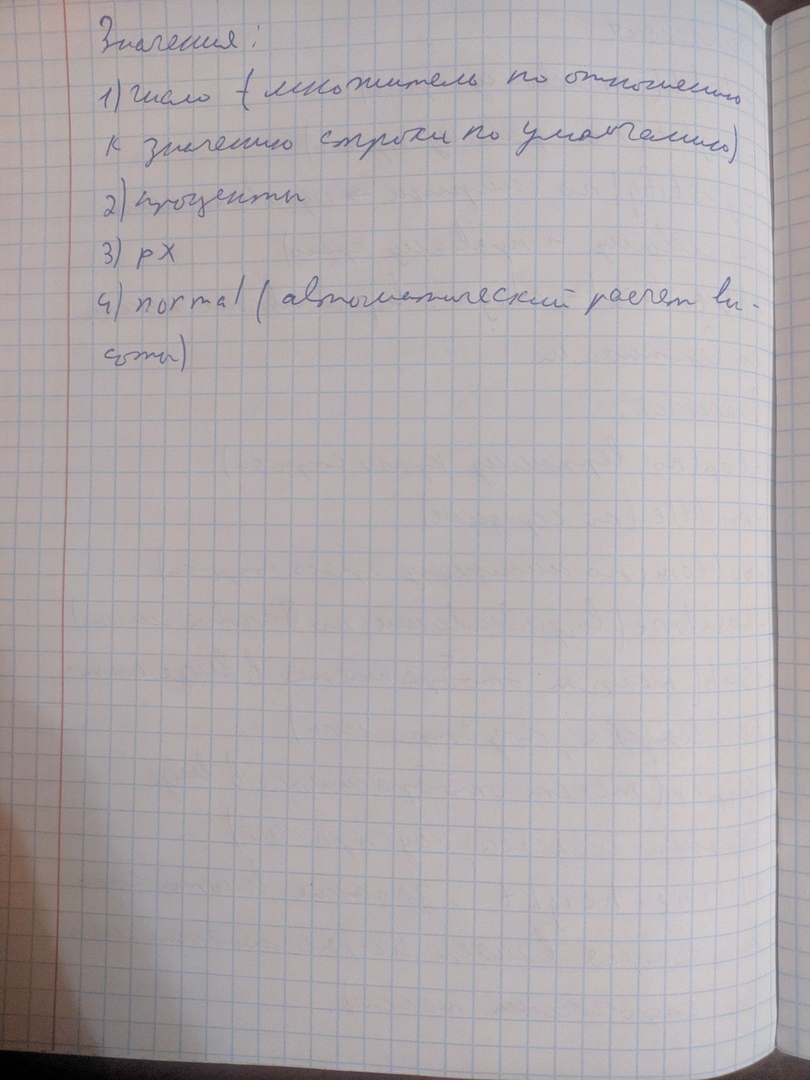 Значения:
1) число (множитель по отношению
к значению строки по умолчанию)
2) проценты
3) px
4) normal (автоматический расчет вы-
соты)